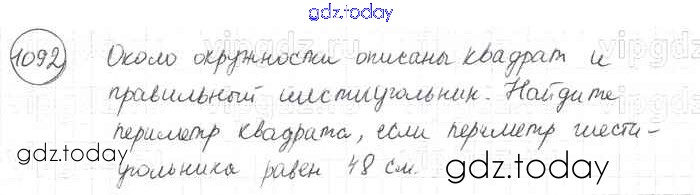 gdz.today
1092 Около окружности описаны квадрат и
правильный шестиугольник. Найдите
периметр квадрата, если периметр шести-
gdz.today
угольника равен 48 см.
gdz.today